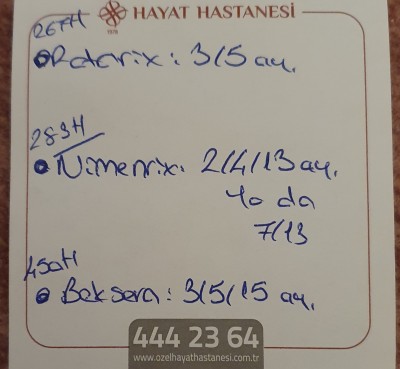 HAYAT HASTANESİ
1976
267H
Rotarix: 3/5 ay.
283H
Nimenrix: 2/4/13 ay.
Yo da
7/13
450H
Beksero: 3/5/15 ay.
444 23 64
www.ozelhayathastanesi.com.tr